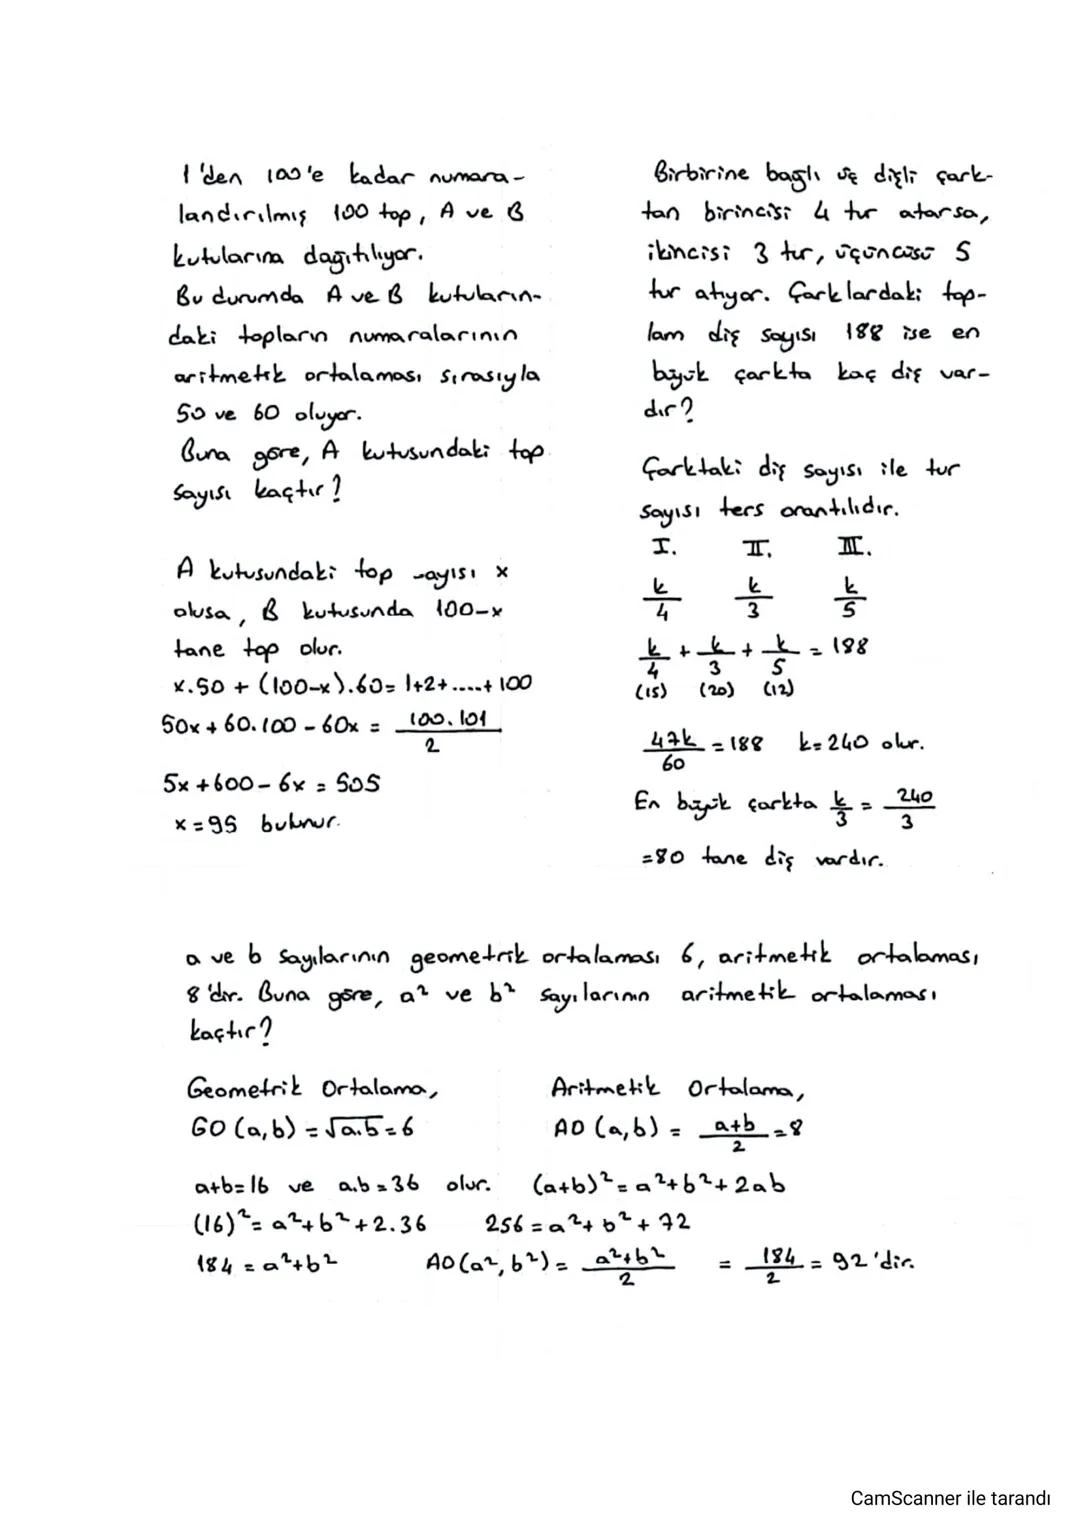 1'den 100'e kadar numara-
landırılmış 100 top, A ve B
kutularına dağıtılıyor.
Bu durumda A ve B kutuların-
daki topların numaralarının
aritmetik ortalaması sırasıyla
50 ve 60 oluyor.
Buna göre, A kutusundaki top
sayısı kaçtır?
A kutusundaki top sayısı x
olusa, B kutusunda 100-x
tane top olur.
x.50 + (100-x).60 = 1+2+.....+100
50x + 60.100 - 60x = 100.101 / 2
5x + 600 - 6x = 505
x = 95 bulunur.
Birbirine bağlı üç dişli çark-
tan birincisi 4 tur atarsa,
ikincisi 3 tur, üçüncüsü 5
tur atıyor. Çarklardaki top-
lam diş sayısı 188 ise en
büyük çarkta kaç diş var-
dır?
Çarktaki diş sayısı ile tur
sayısı ters orantılıdır.
I. II. III.
k/4 k/3 k/5
k/4 + k/3 + k/5 = 188
(15) (20) (12)
47k/60 = 188 k = 240 olur.
En büyük çarkta k/3 = 240/3
= 80 tane diş vardır.
a ve b sayılarının geometrik ortalaması 6, aritmetik ortalaması
8'dir. Buna göre, a² ve b² sayılarının aritmetik ortalaması
kaçtır?
Geometrik Ortalama, Aritmetik Ortalama,
GO (a,b) = √a.b = 6 AO (a,b) = a+b / 2 = 8
a+b = 16 ve a.b = 36 olur. (a+b)² = a²+b²+2ab
(16)² = a²+b²+2.36 256 = a²+b²+72
184 = a²+b² AO(a²,b²) = a²+b² / 2 = 184/2 = 92'dir.
CamScanner ile tarandı